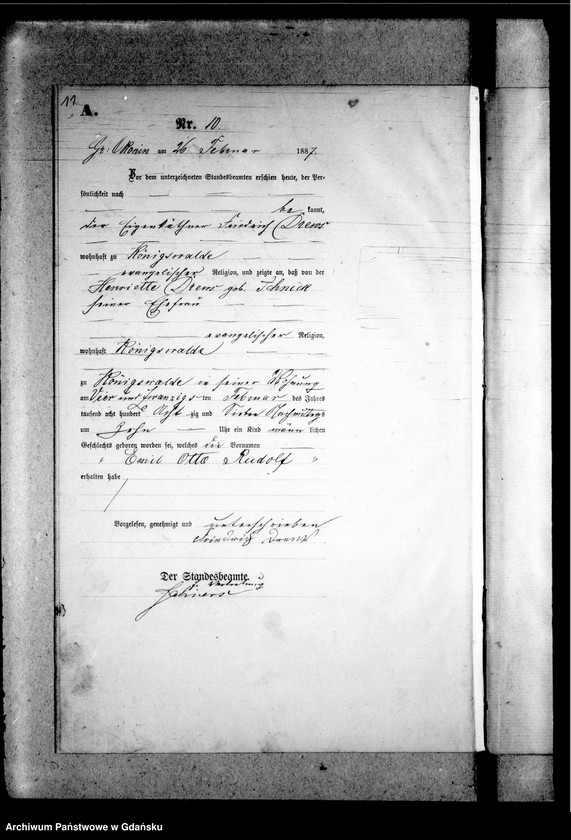 11
A.
Nr. 10.
Gr: Okonin am 26 Februar 1887.
Vor dem unterzeichneten Standesbeamten erschien heute, der Per-
sönlichkeit nach
be kannt,
der Eigenkäthner Friedrich Drews
wohnhaft zu Königswalde
evangelischer Religion, und zeigte an, daß von der
Henriette Drews geb.
seiner Ehefrau
evangelischer Religion,
wohnhaft Königswalde
zu Königswalde in seiner Wohnung
am Vier und zwanzigs ten Februar des Jahres
tausend acht hundert Acht zig und Sieben Nachmittags
um Zehn Uhr ein Kind männ lichen
Geschlechts geboren worden sei, welches die Vornamen
" Emil Otto Rudolf "
erhalten habe
Vorgelesen, genehmigt und unterschrieben
Friedrich Drews
Der Standesbeamte.
Vertretung
Archiwum Państwowe w Gdańsku